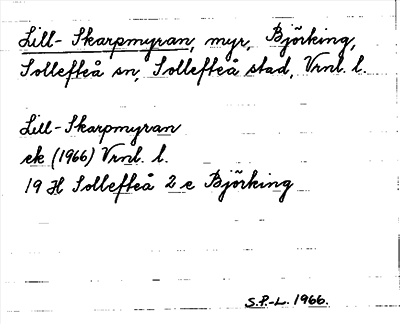 Lill-Skarpmyran, myr, Björking,
Sollefteå sn, Sollefteå stad, Vrnl. l.
Lill-Skarpmyran
ek (1966) Vrnl. l.
19 H Sollefteå 2 e Björking
S.P.-L. 1966.